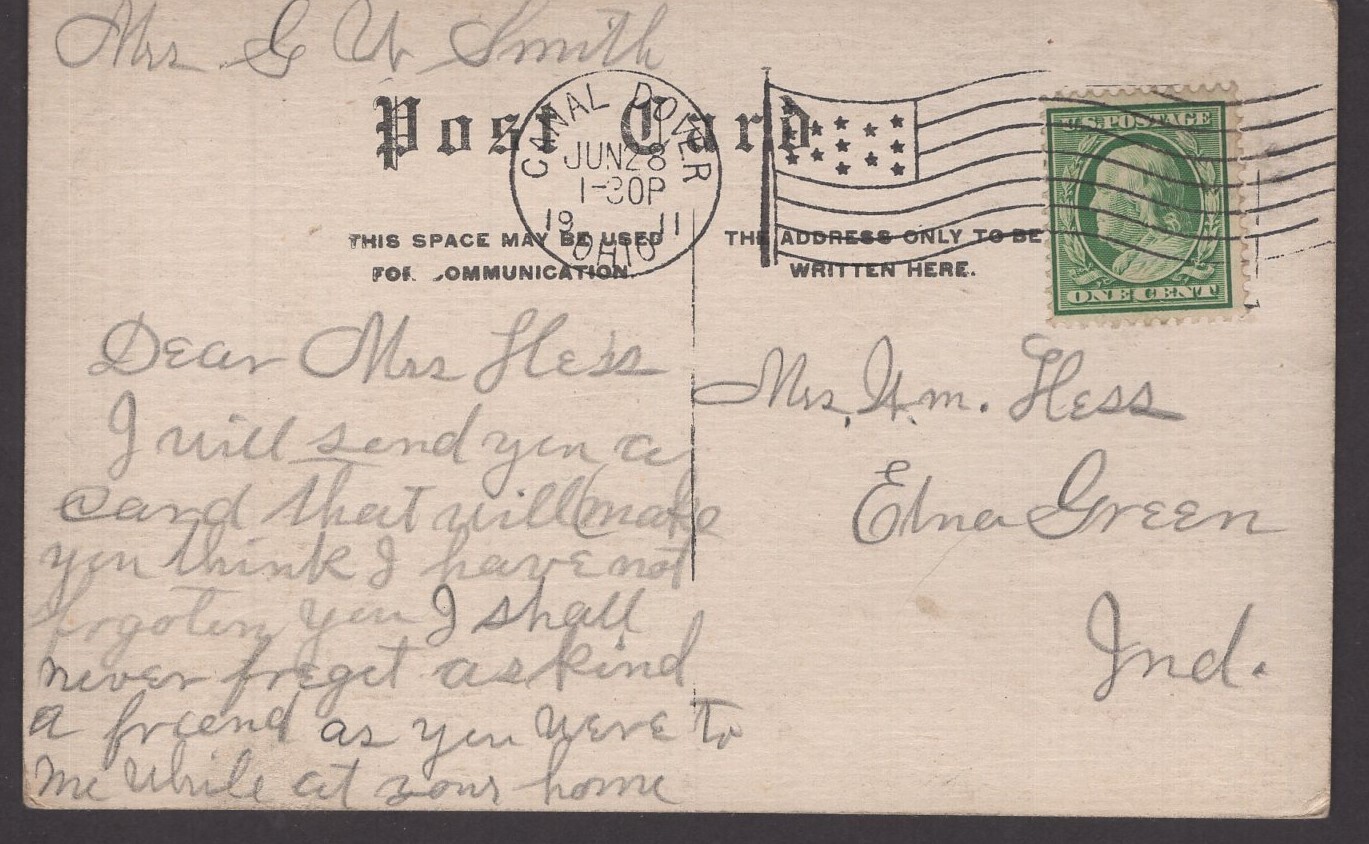 Mrs G W Smith
Post Card
CANAL DOVER
JUN 28
1-30P
1911
OHIO
U.S. POSTAGE
ONE CENT
THIS SPACE MAY BE USED
FOR COMMUNICATION.
THE ADDRESS ONLY TO BE
WRITTEN HERE.
Dear Mrs Hess
I will send you a
card that will make
you think I have not
forgoten you I shall
never freget as kind
a friend as you were to
me while at your home
Mrs. Wm. Hess
Etna Green
Ind.